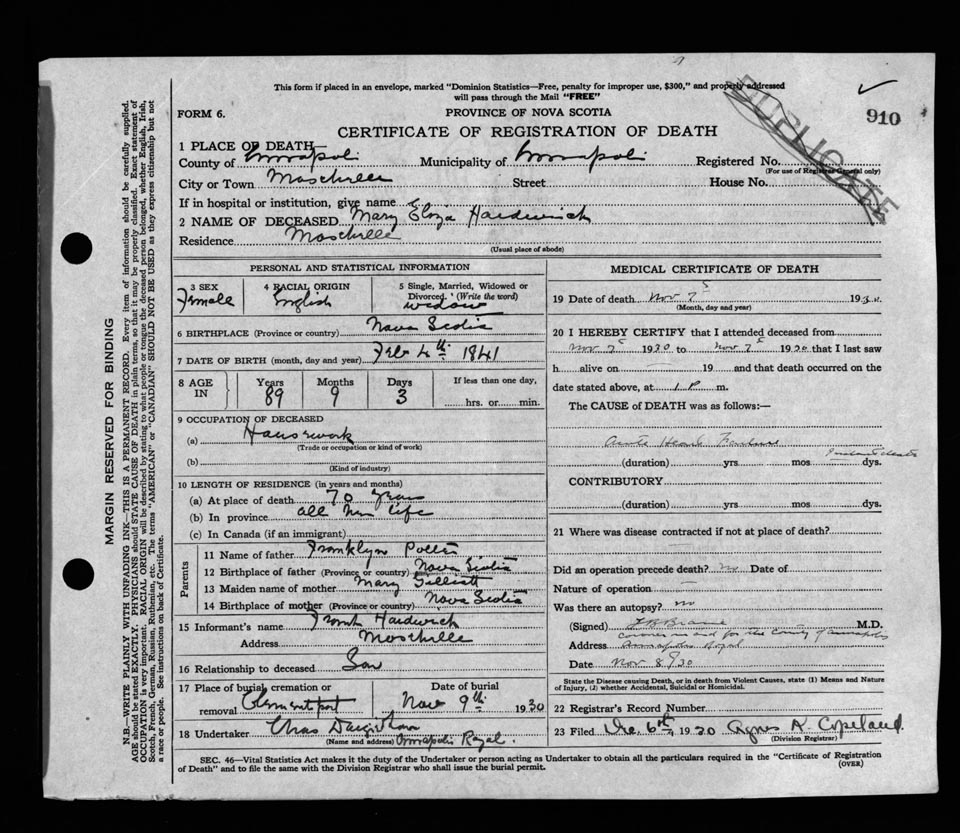 This form if placed in an envelope, marked "Dominion Statistics—Free, penalty for improper use, $300," and properly addressed
will pass through the Mail "FREE"
DUPLICATE
910
FORM 6.
PROVINCE OF NOVA SCOTIA
CERTIFICATE OF REGISTRATION OF DEATH
1 PLACE OF DEATH—
County of Annapolis Municipality of Annapolis Registered No.
(For use of Registrar General only)
City or Town Moschelle Street House No.
If in hospital or institution, give name
2 NAME OF DECEASED Mary Eliza Hardwick
Residence Moschelle
(Usual place of abode)
PERSONAL AND STATISTICAL INFORMATION
3 SEX 4 RACIAL ORIGIN 5 Single, Married, Widowed or
Divorced. (Write the word)
Female English widow
6 BIRTHPLACE (Province or country) Nova Scotia
7 DATE OF BIRTH (month, day and year) Feb 4th 1841
8 AGE IN Years Months Days If less than one day,
89 9 3 hrs. or min.
9 OCCUPATION OF DECEASED
(a) Housework
(Trade or occupation or kind of work)
(b)
(Kind of industry)
10 LENGTH OF RESIDENCE (in years and months)
(a) At place of death 70 years
(b) In province all her life
(c) In Canada (if an immigrant)
Parents
11 Name of father Franklyn Potter
12 Birthplace of father (Province or country) Nova Scotia
13 Maiden name of mother Mary
14 Birthplace of mother (Province or country) Nova Scotia
15 Informant's name Frank Hardwick
Address Moschelle
16 Relationship to deceased Son
17 Place of burial, cremation or Date of burial
removal Clementsport Nov 9th 1930
18 Undertaker Chas
(Name and address) Annapolis Royal.
MEDICAL CERTIFICATE OF DEATH
19 Date of death Nov 7 1930
(Month, day and year)
20 I HEREBY CERTIFY that I attended deceased from
Nov 7 1930 to Nov 7 1930 that I last saw
h alive on 19 and that death occurred on the
date stated above, at 1 P m.
The CAUSE of DEATH was as follows:—
Acute Heart Failure
Instant death
(duration) yrs mos dys.
CONTRIBUTORY
(duration) yrs mos dys.
21 Where was disease contracted if not at place of death?
Did an operation precede death? no Date of
Nature of operation
Was there an autopsy? no
(Signed) M.D.
coroner in and for the County of Annapolis
Address Annapolis Royal
Date Nov 8/30
State the Disease causing Death, or in death from Violent Causes, state (1) Means and
Nature of Injury, (2) whether Accidental, Suicidal or Homicidal.
22 Registrar's Record Number
23 Filed Dec 6th 1930 Agnes K. Copeland.
(Division Registrar)
SEC. 46—Vital Statistics Act makes it the duty of the Undertaker or person acting as Undertaker to obtain all the particulars required in the "Certificate of Registration
of Death" and to file the same with the Division Registrar who shall issue the burial permit.
(OVER)
MARGIN RESERVED FOR BINDING
N.B.—WRITE PLAINLY WITH UNFADING INK—THIS IS A PERMANENT RECORD. Every item of information should be carefully supplied.
AGE should be stated EXACTLY. PHYSICIANS should STATE CAUSE OF DEATH in plain terms, so that it may be properly classified. Exact statement of
OCCUPATION is very important. RACIAL ORIGIN will be described by stating to what people or tongue the deceased person belonged, whether English, Irish,
Scotch, French, German, Russian, Ruthenian, etc. The terms "AMERICAN" or "CANADIAN" SHOULD NOT BE USED as they express citizenship but not
a race or people. See instructions on back of Certificate.